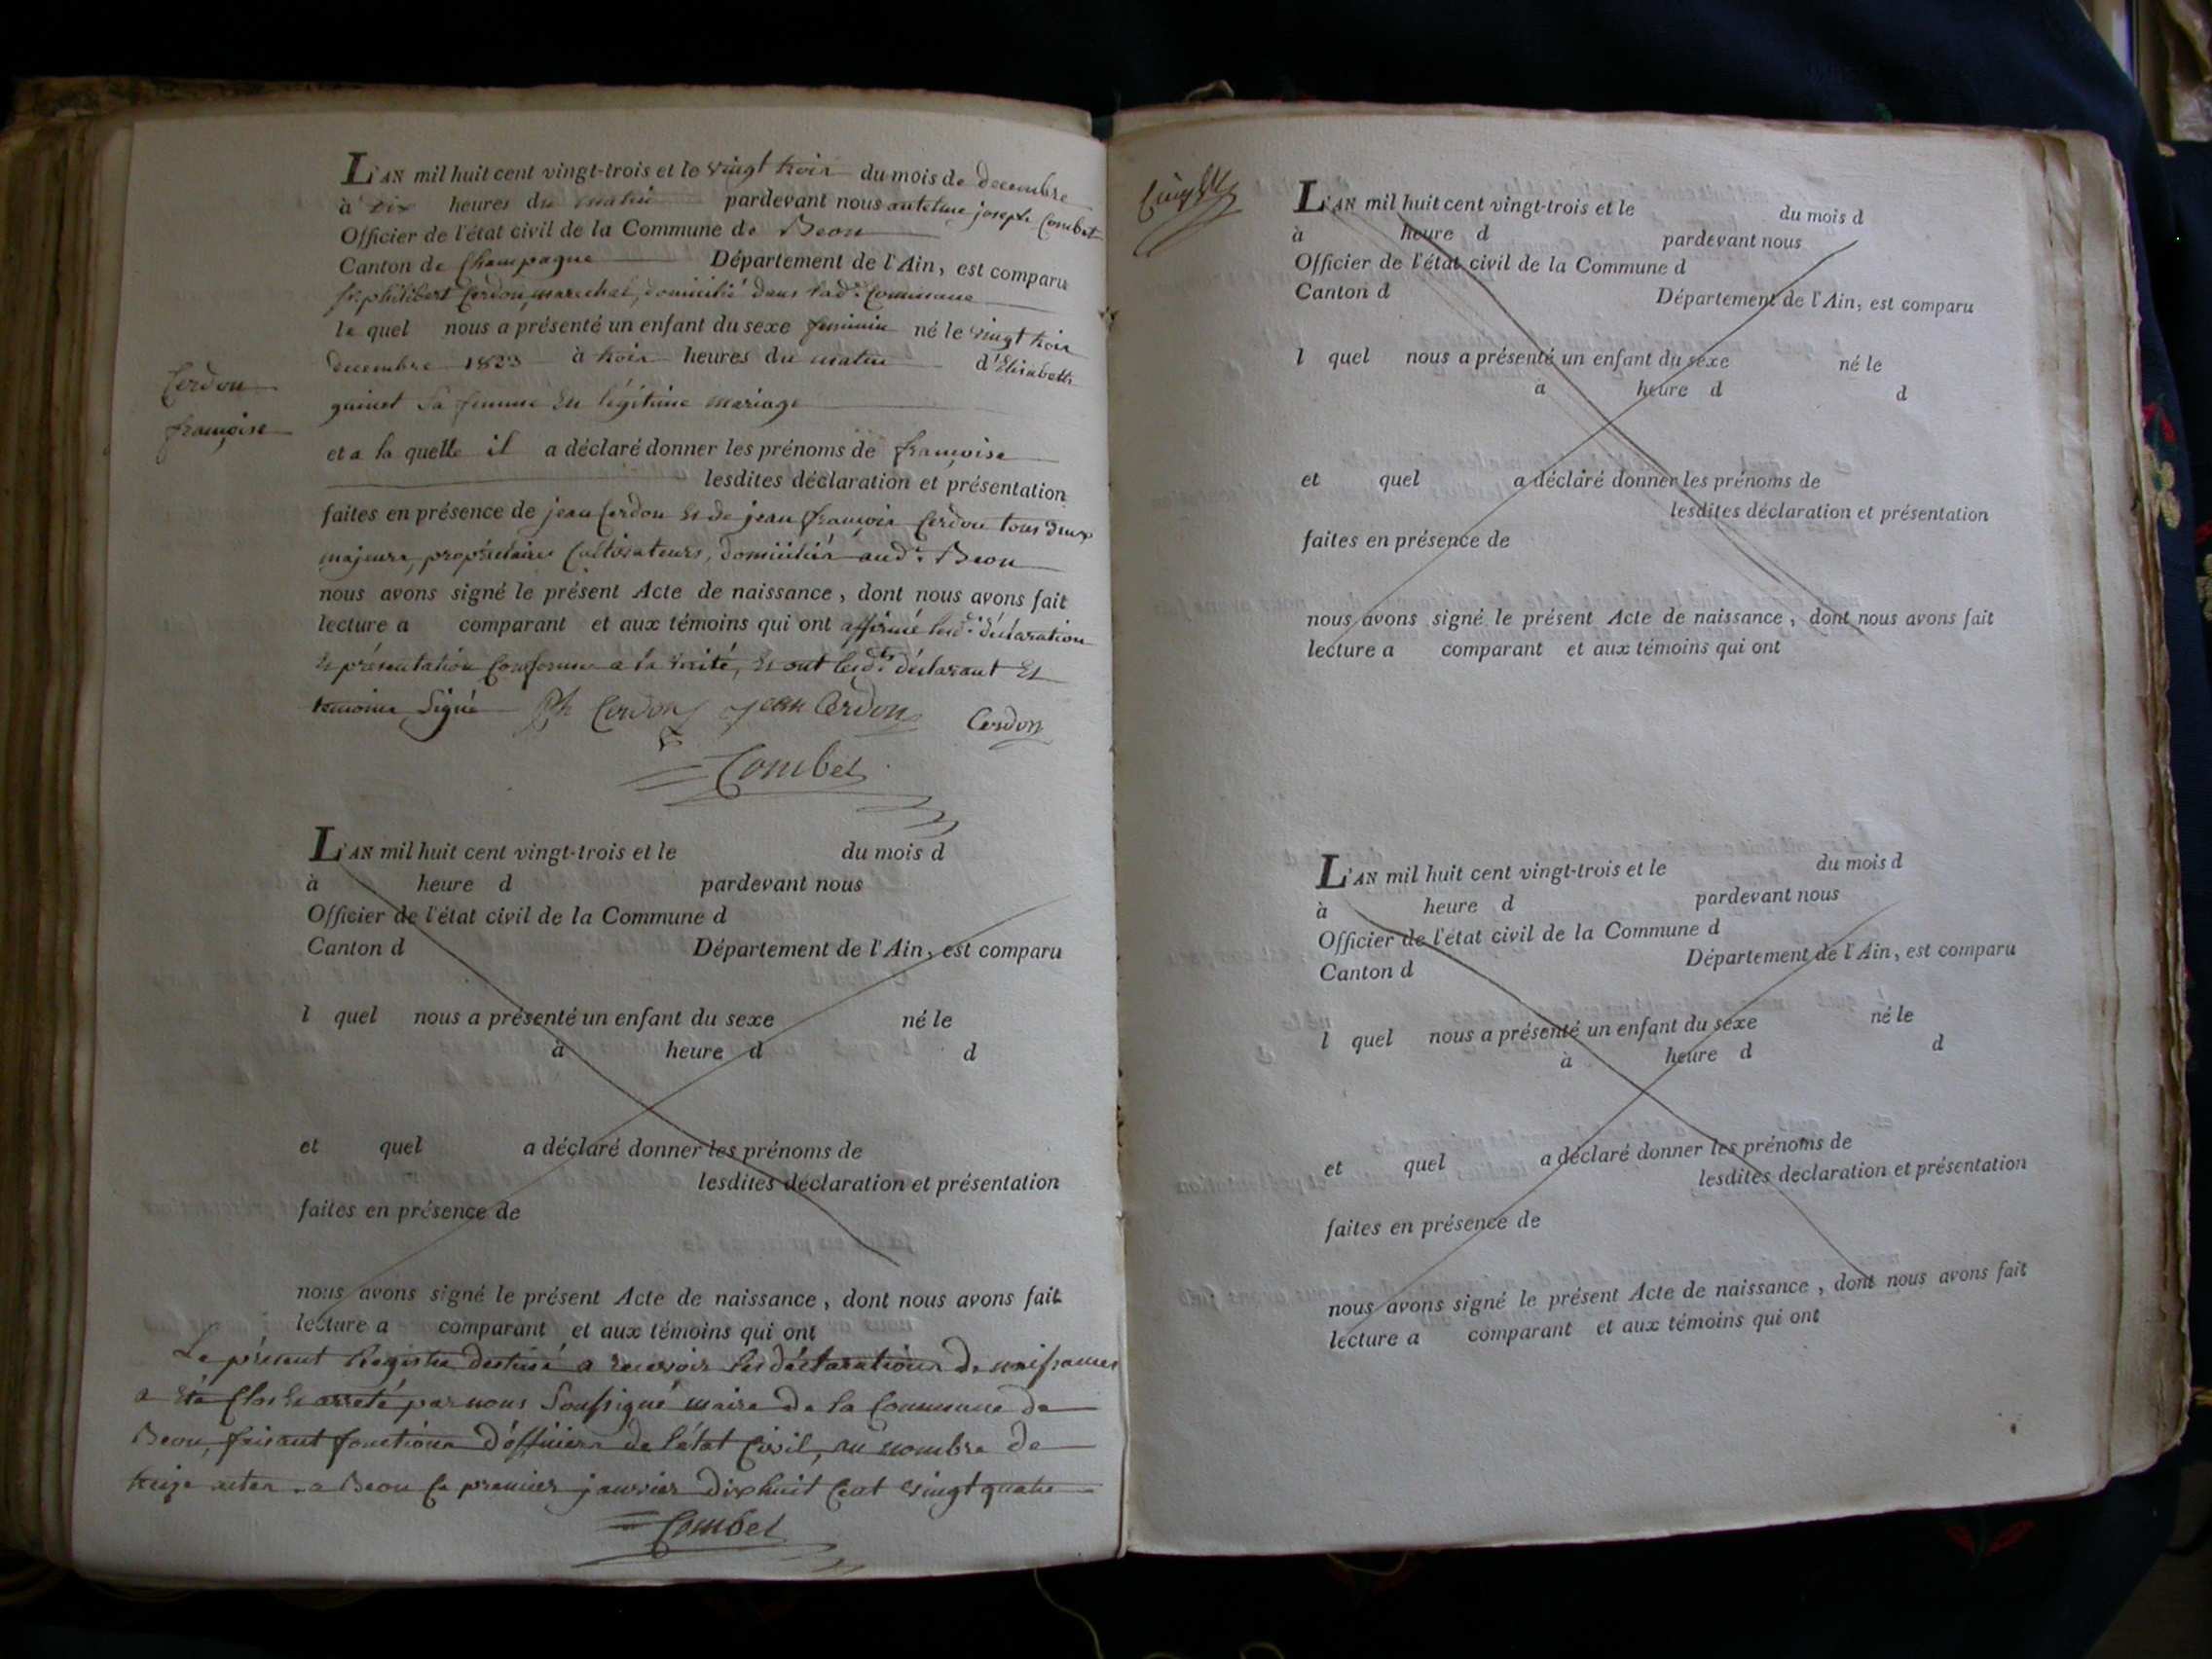 L'AN mil huit cent vingt-trois et le vingt trois du mois de decembre
à dix heures du matin pardevant nous antelme joseph Combet
Officier de l'état civil de la Commune de Beon
Canton de Champagne Département de l'Ain, est comparu
sr. philibert Cerdon, marechal, domicilié dans lad.e Commune
le quel nous a présenté un enfant du sexe feminin né le vingt trois
decembre 1823 à trois heures du matin d'Elisabeth
guinet sa femme en légitime mariage
Cerdon
françoise
et a la quelle il a déclaré donner les prénoms de françoise
lesdites déclaration et présentation
faites en présence de jean Cerdon et de jean françois Cerdon tous deux
majeurs, propriétaires Cultivateurs, domiciliés aud.t Beon
nous avons signé le présent Acte de naissance, dont nous avons fait
lecture a comparant et aux témoins qui ont affirmé lesd. déclaration
et présentation conformes a la vérité, et ont lesd.ts déclarant et
temoins signé Ph Cerdon jean Cerdon Cerdon
Combet
L'AN mil huit cent vingt-trois et le du mois d
à heure d pardevant nous
Officier de l'état civil de la Commune d
Canton d Département de l'Ain, est comparu
l quel nous a présenté un enfant du sexe né le
à heure d d
et quel a déclaré donner les prénoms de
lesdites déclaration et présentation
faites en présence de
nous avons signé le présent Acte de naissance, dont nous avons fait
lecture a comparant et aux témoins qui ont
Le présent Registre destiné a recevoir les déclarations de naissances
a été Clos et arreté par nous Soussigné maire de la Commune de
Beon, faisant fonctions d'officier de l'état Civil, au nombre de
treize actes. a Beon le premier janvier dix huit Cent vingt quatre
Combet
L'AN mil huit cent vingt-trois et le du mois d
à heure d pardevant nous
Officier de l'état civil de la Commune d
Canton d Département de l'Ain, est comparu
l quel nous a présenté un enfant du sexe né le
a heure d d
et quel a déclaré donner les prénoms de
lesdites déclaration et présentation
faites en présence de
nous avons signé le présent Acte de naissance, dont nous avons fait
lecture a comparant et aux témoins qui ont
L'AN mil huit cent vingt-trois et le du mois d
à heure d pardevant nous
Officier de l'état civil de la Commune d
Canton d Département de l'Ain, est comparu
l quel nous a présenté un enfant du sexe né le
à heure d d
et quel a déclaré donner les prénoms de
lesdites déclaration et présentation
faites en présence de
nous avons signé le présent Acte de naissance, dont nous avons fait
lecture a comparant et aux témoins qui ont